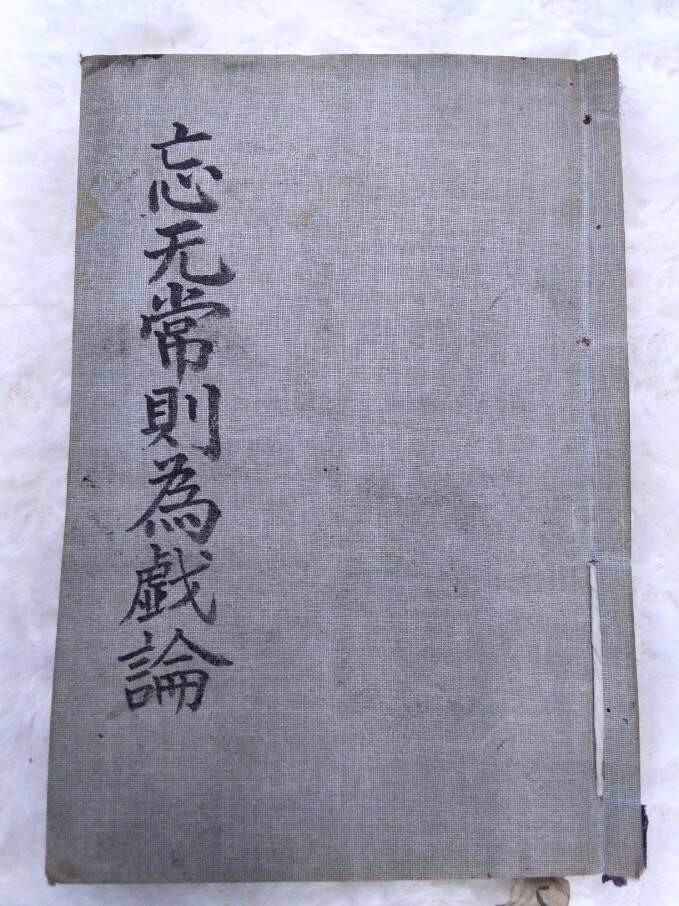 忘无常則為戯論